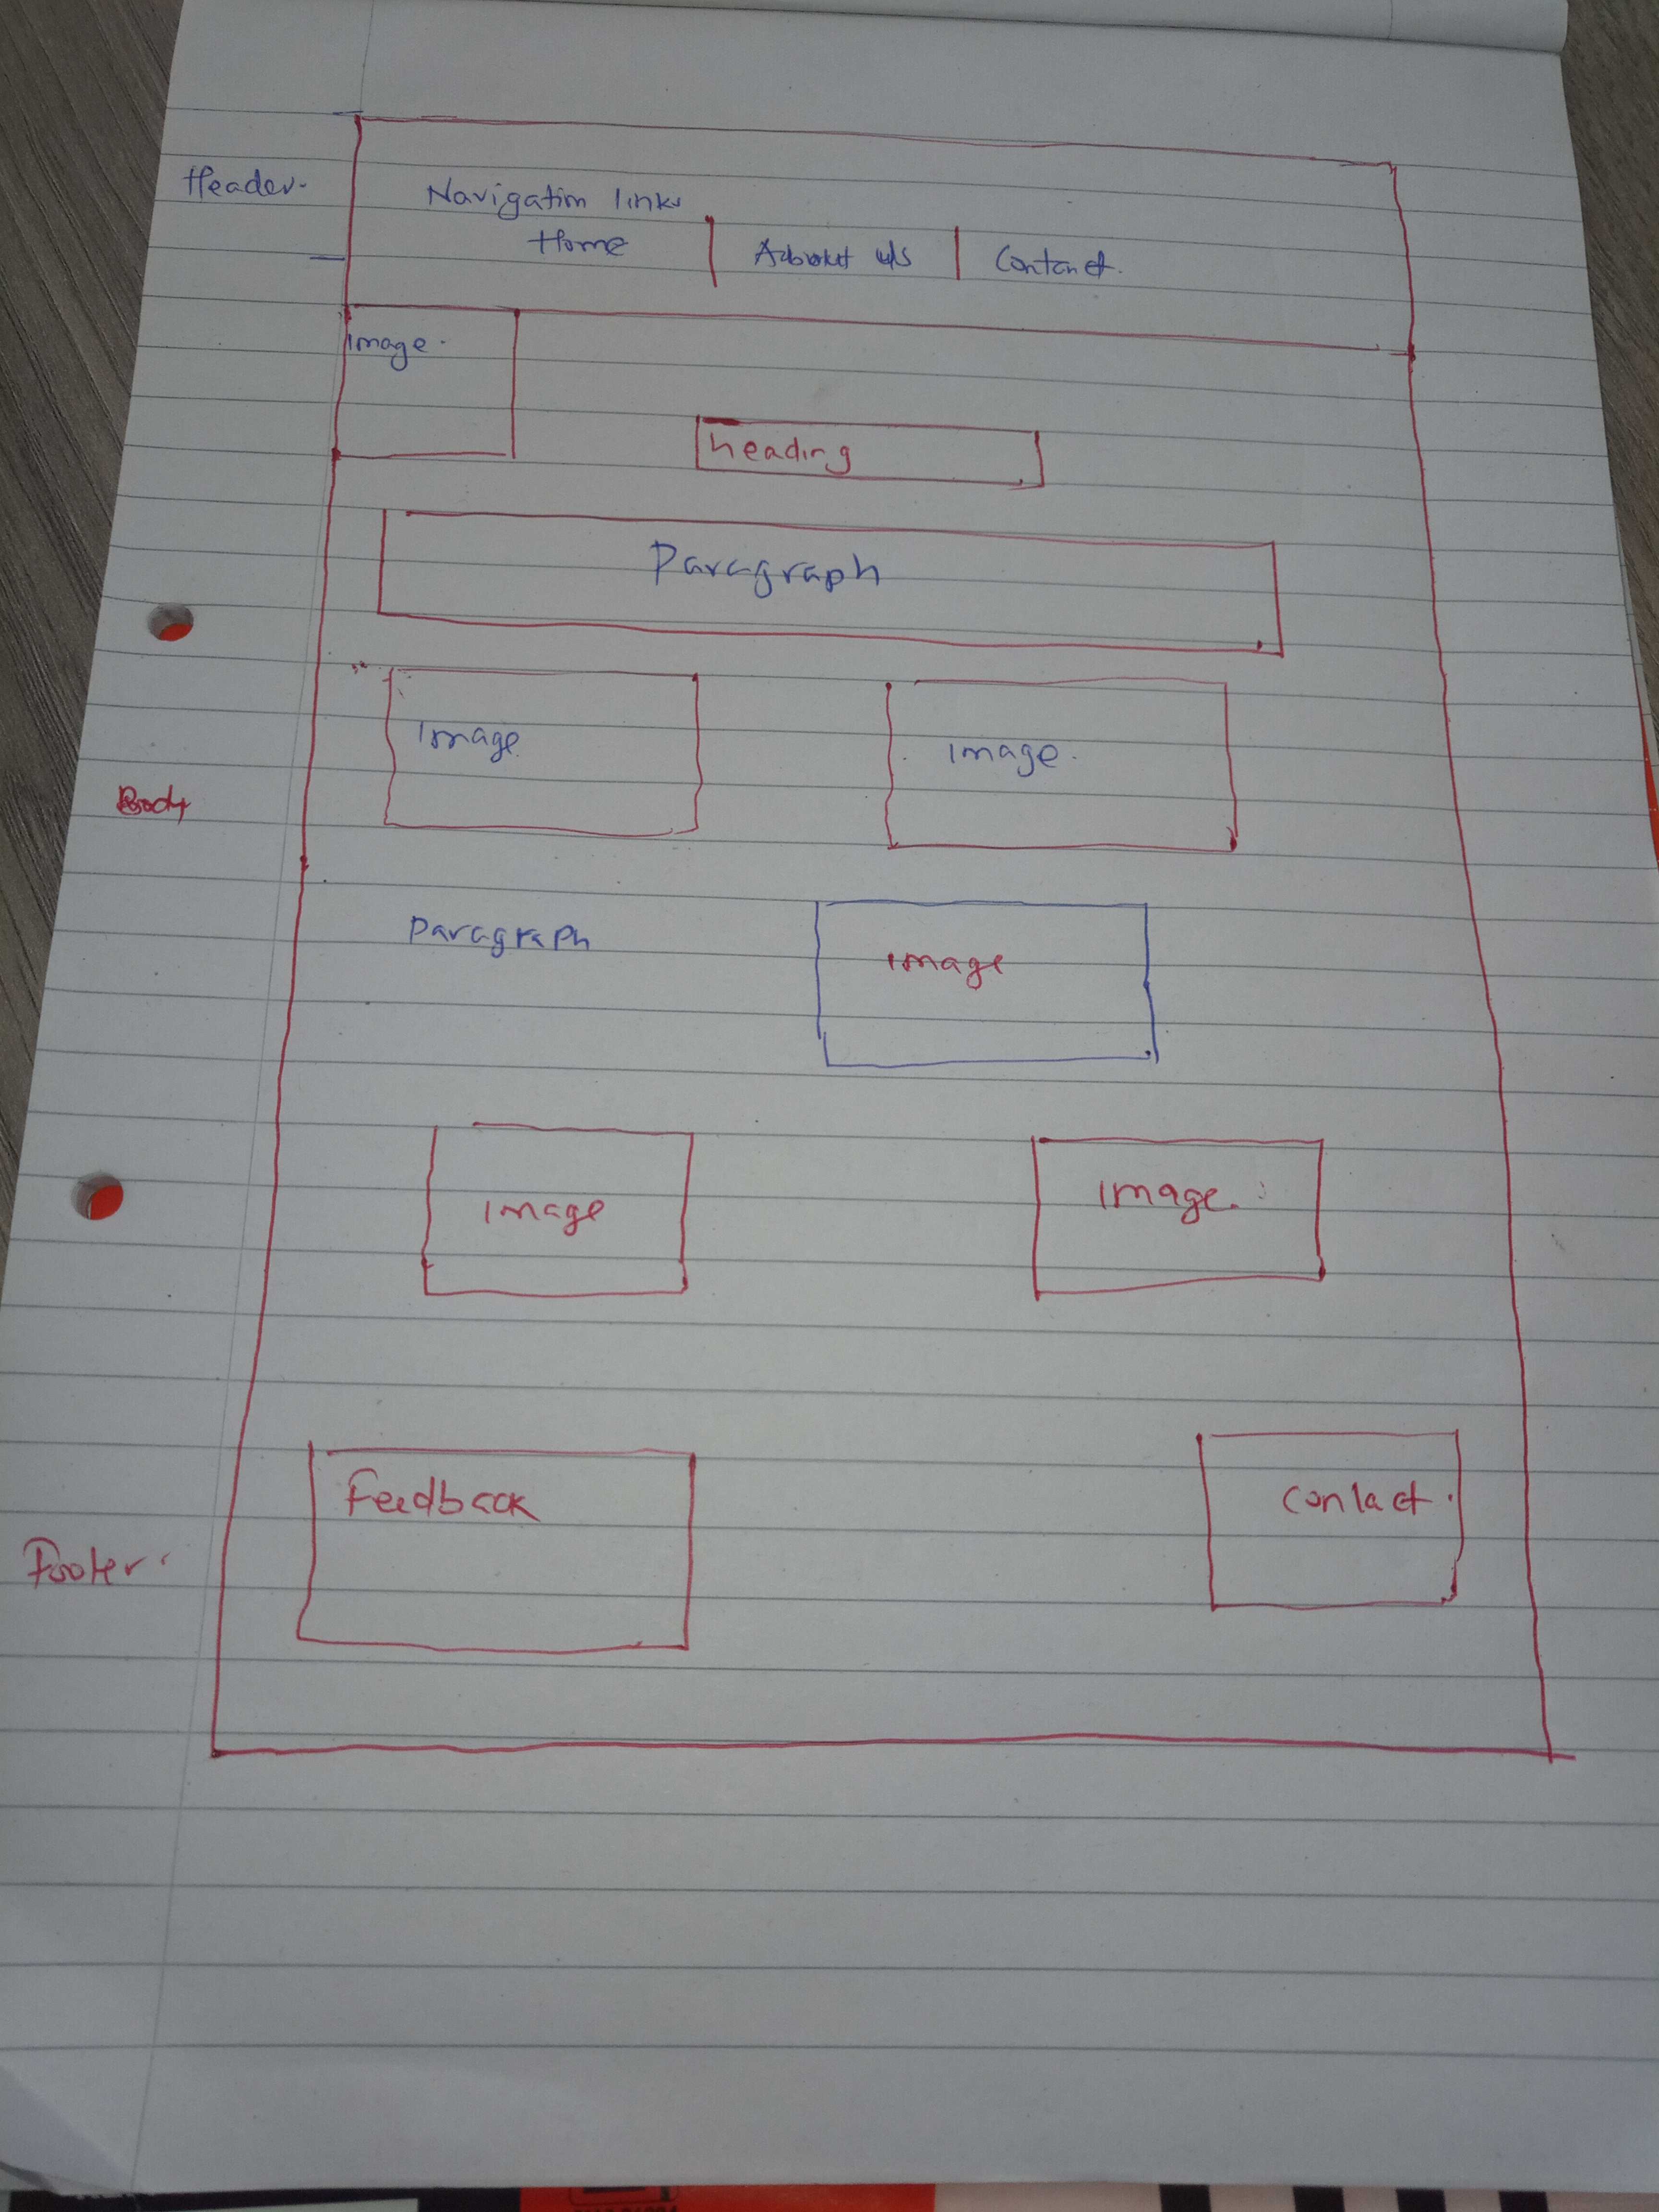 Header.
Navigation links
Home | About us | Contact.
image.
heading
Paragraph
image
image.
Body
Paragraph
image
image
image.
Feedback
contact.
Footer.